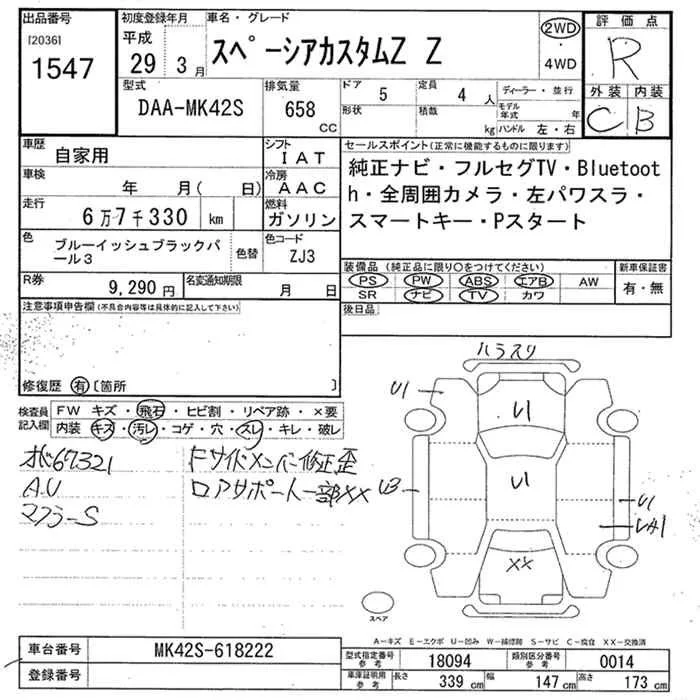 出品番号
[2036]
1547
初度登録年月
平成
29 3月
車名・グレード
スペーシアカスタムZ Z
2WD
・
4WD
評価点
R
外装 内装
C B
型式
DAA-MK42S
排気量
658 CC
ドア
5
形状
定員
4 人
積載
kg
ディーラー・並行
モデル年式 年
ハンドル 左・右
車歴
自家用
シフト
IAT
車検
年 月( 日)
冷房
AAC
走行
6万7千330 km
燃料
ガソリン
色
ブルーイッシュブラックパール3
色替
色コード
ZJ3
R券
9,290円
名変通知期限
月 日
セールスポイント(正常に機能するものに限ります)
純正ナビ・フルセグTV・Bluetoot
h・全周囲カメラ・左パワスラ・
スマートキー・Pスタート
装備品 (純正品に限り○をつけてください)
PS PW ABS エアB AW
SR ナビ TV カワ
新車保証書
有・無
後日品
注意事項申告欄(不具合内容等は具体的に記入して下さい)
修復歴 有 〔箇所 〕
検査員記入欄
FW キズ・飛石・ヒビ割・リペア跡・×要
内装 キズ・汚レ・コゲ・穴・スレ・キレ・破レ
67321
A.U
マフラーS
Fサイドメンバー修正歪
ロアサポート一部××
ハラスリ
U1
U1
U1
U3
U1
××
スペア
A-キズ E-エクボ U-凹み W-補修跡 S-サビ C-腐食 XX-交換済
車台番号
MK42S-618222
登録番号
型式指定番号
参考
18094
類別区分番号
参考
0014
車庫証明用
参考
長さ 339 cm
幅 147 cm
高さ 173 cm